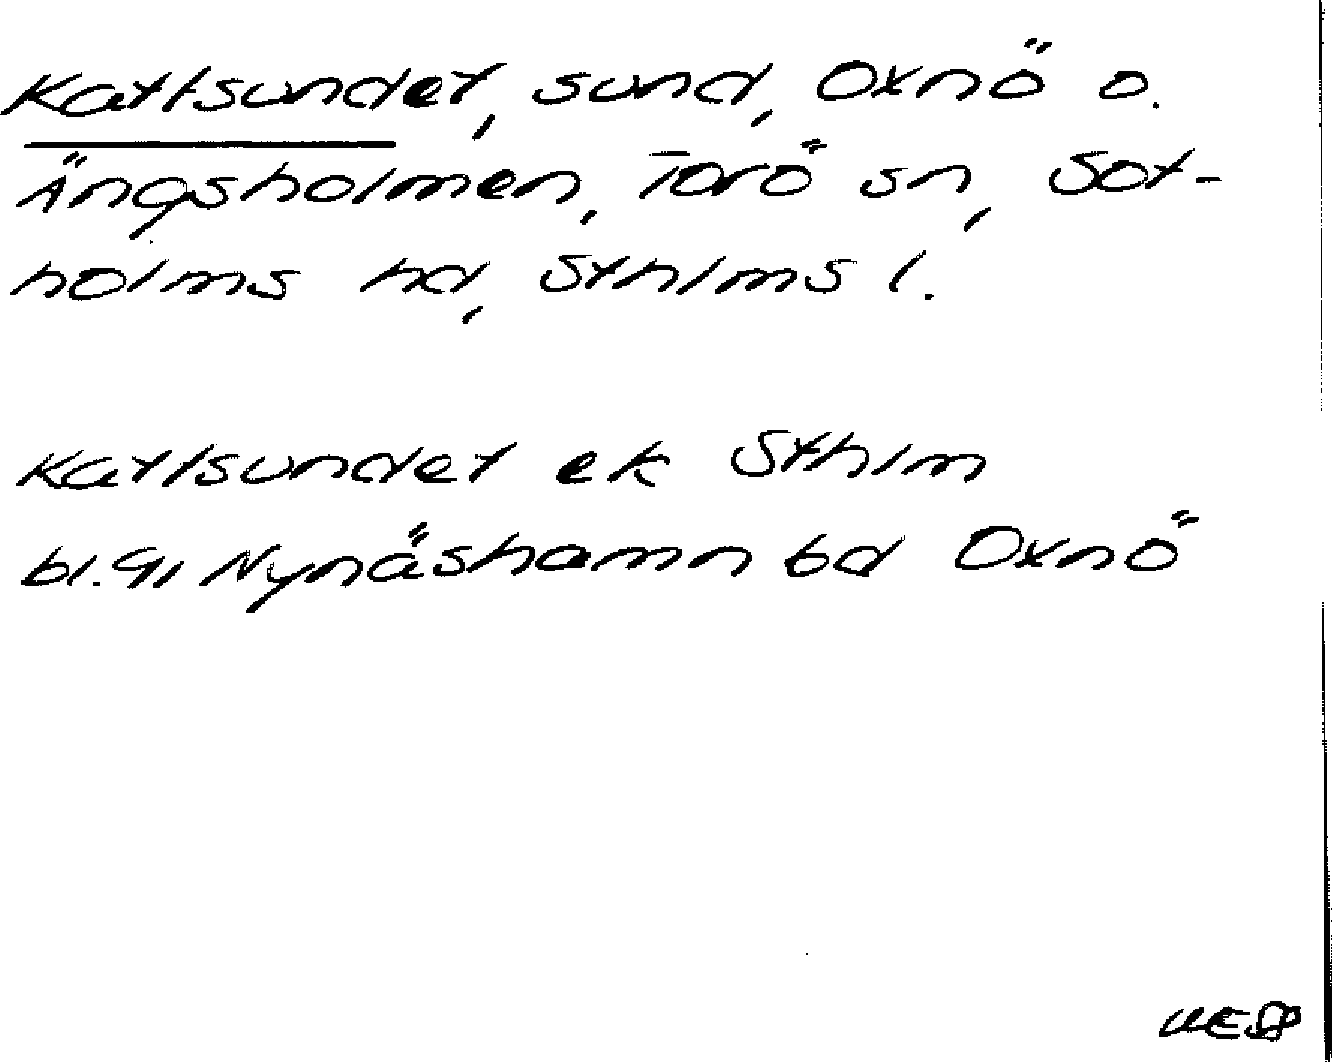 Kattsundet, sund, Oxnö o.
Ängsholmen, Torö sn, Sot-
holms hd, Sthlms l.
Kattsundet ek Sthlm
bl. 91 Nynäshamn bd Oxnö